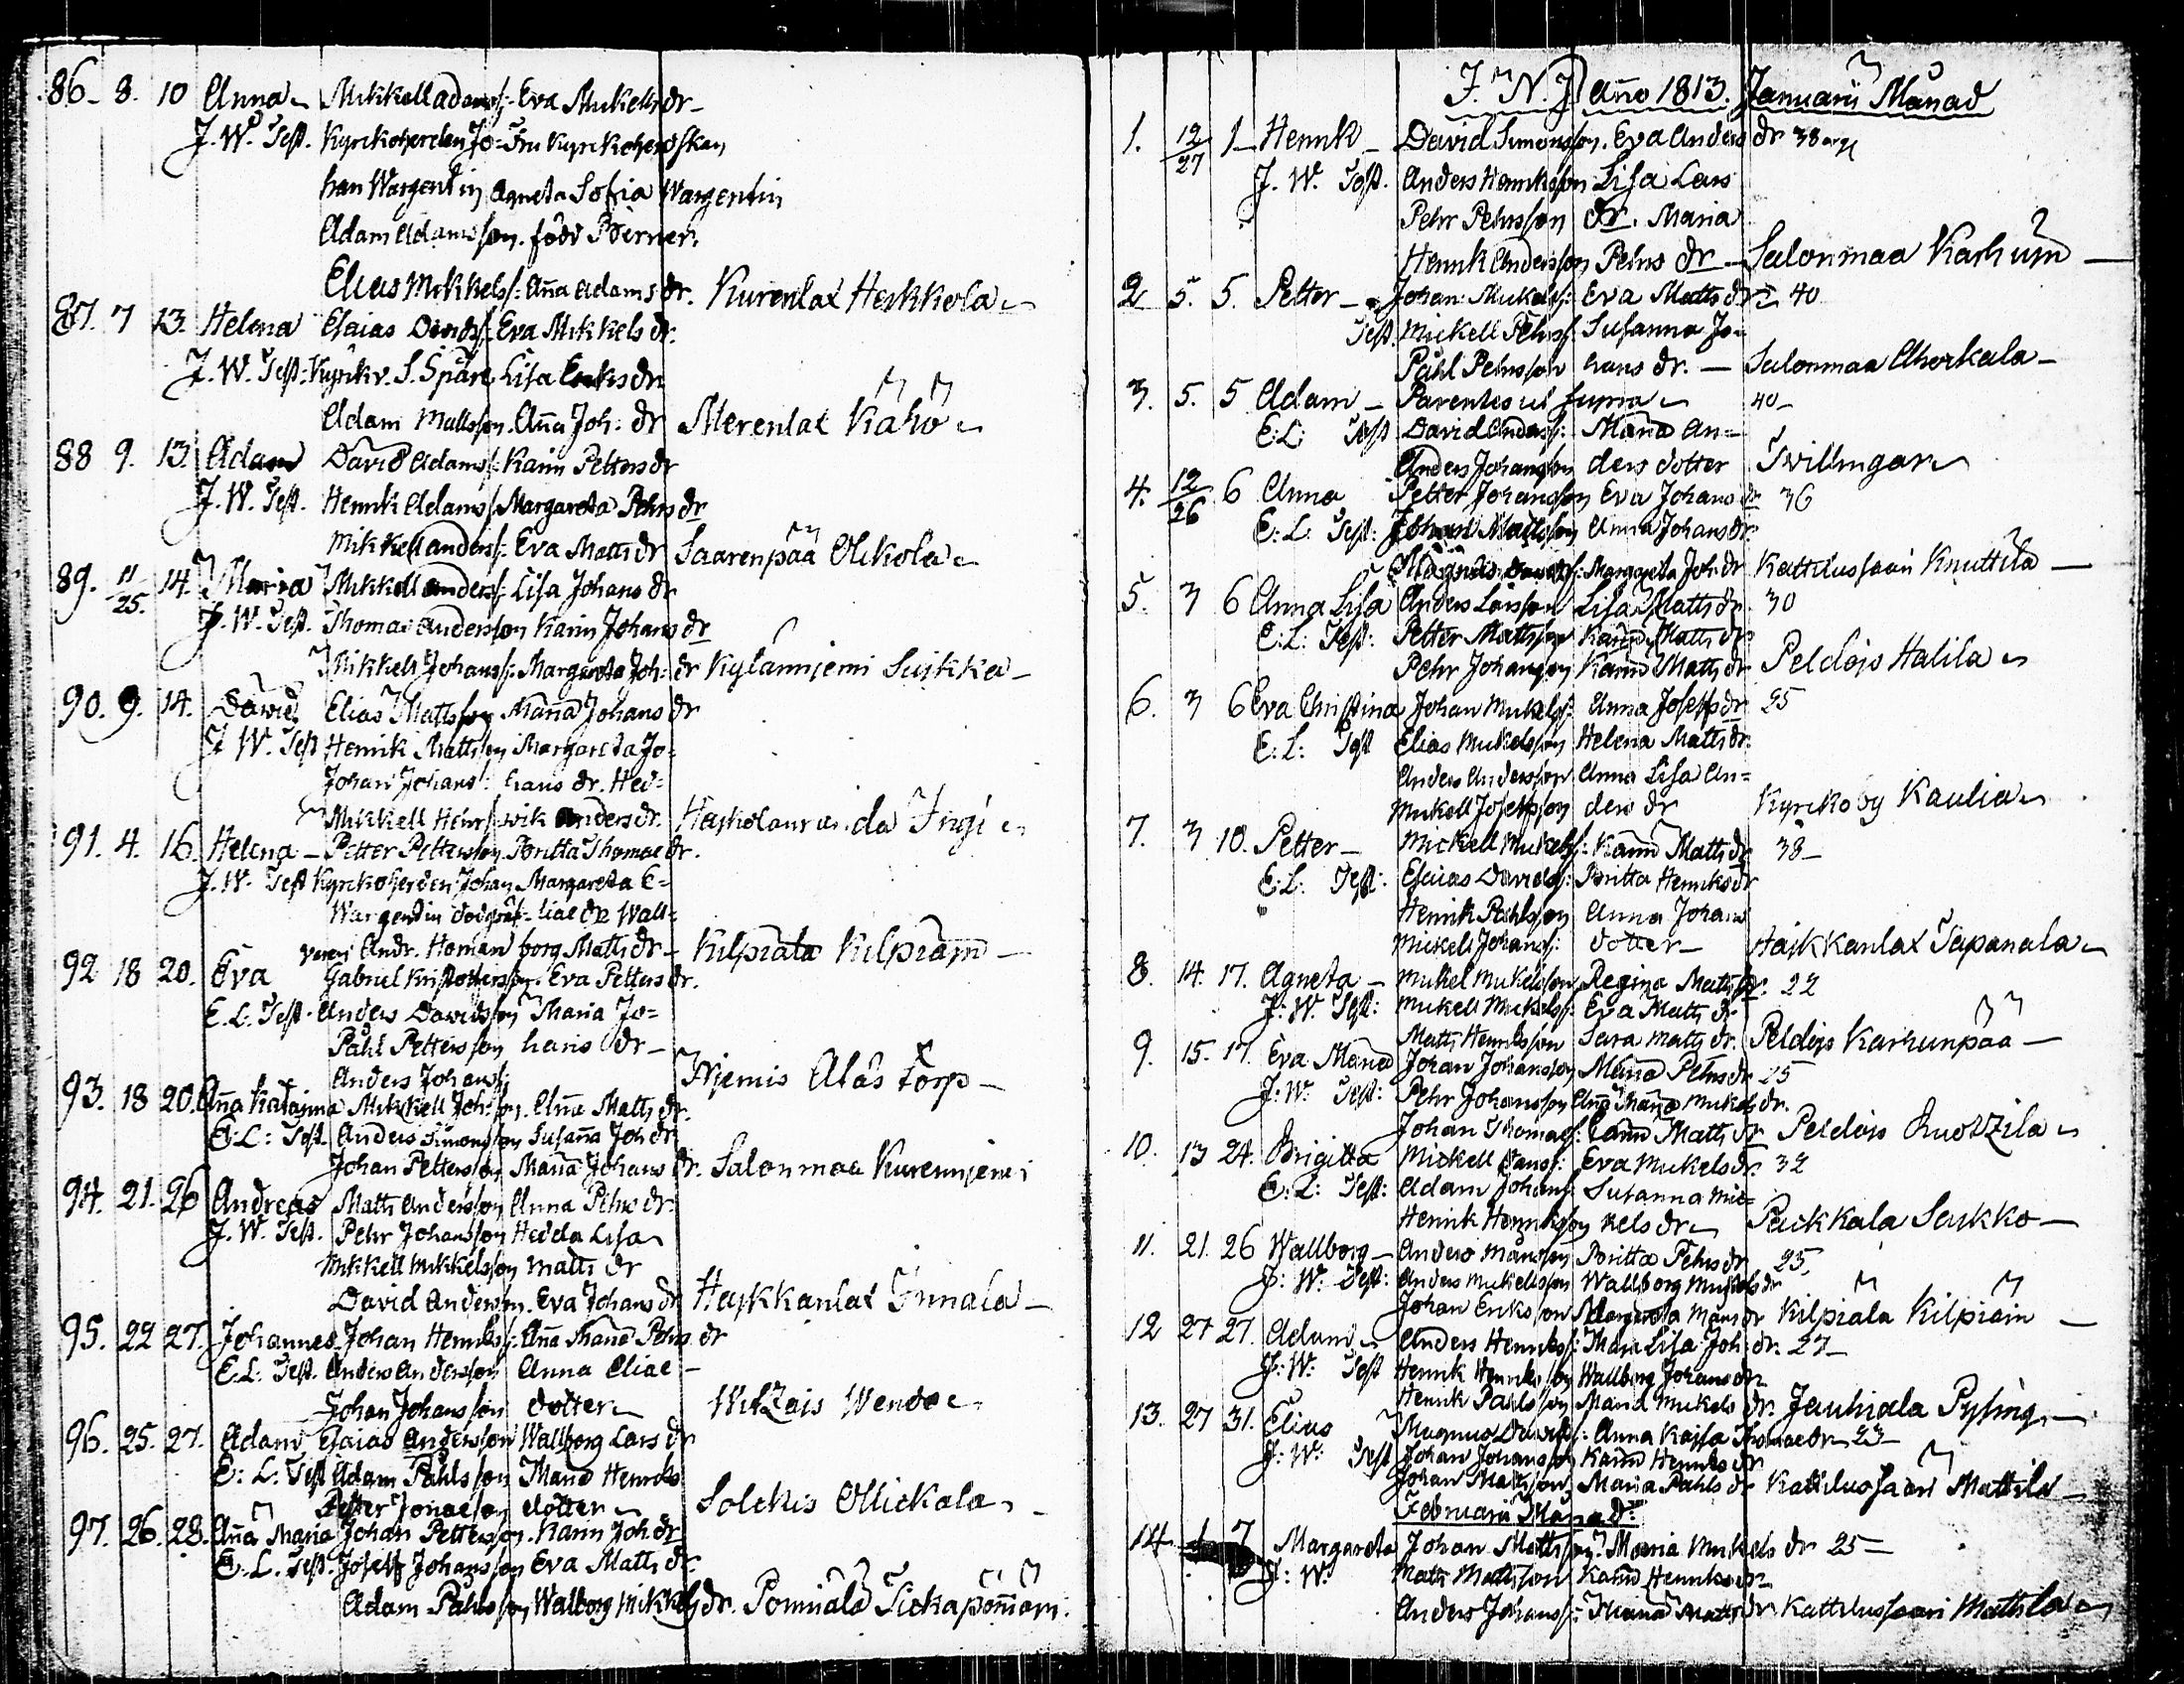 86. 8. 10 Anna Mikkell Adamss: Eva Mickells dr
J. W. Test. Kyrckoherden Jo- Fru Kyrckoherdskan
han Wargentin Agneta Sofia Wargentin
Adam Adamsson. född Poerner.
Elias Mikkelss: Aña Adams dr. Kurenlax Heikkola
87. 7 13. Helena Esaias Davidss: Eva Mikkels dr.
J. W. Test: Kyrckv. S. Spåre Lisa Eriks dr
Adam Mattsson. Aña Joh: dr Merenlax Kähö
88 9. 13. Adam David Adamss: Karin Petters dr
J. W. Test. Henrik Adamss: Margareta Pehrs dr
Mikkell Anderss: Eva Matts dr Saarenpää Ollikola
89. 11/25. 14. Maria Mikkell Anderss: Lisa Johans dr
J. W. Test. Thomas Andersson Karin Johans dr
Mikkell Johanss: Margareta Joh: dr Kylänniemi Suikka
90. 9. 14. David Elias Mattsson Maria Johans dr
J. W. Test Henrik Mattsson Margareta Jo-
Johan Johanss: hans dr. Hed-
Mikkell Henrs: wik Anders dr. Ingi
91. 4. 16. Helena Petter Pettersson Britta Thomae dr.
J. W. Test Kyrckoherden Johan Margareta E-
Wargentin liae dr Wall-
Andr. Homan borg Matts dr Kilpiala Kilpiäin
92 18 20. Eva Gabriel Kristoffersson. Eva Petters dr.
E. L. Test. Anders Davidsson Maria Jo-
Påhl Pettersson hans dr
Anders Johanss: Niemis Alås Torp
93. 18 20. Aña Katarina Mikkell Joh:son. Aña Matts dr.
E: L: Test. Anders Simonsson Susaña Joh dr
Johan Pettersson Maria Johans dr. Salonmaa Kurenniemi
94. 21. 26 Andreas Matts Andersson Anna Pehrs dr.
J. W. Test. Pehr Johansson Hedda Lisa
Mikkell Mikkelsson Matts dr
David Andersson. Eva Johans dr Heikkanlax Innala
95. 22 27. Johannes Johan Henrikss: Aña Maria Pehrs dr
E. L: Test. Anders Andersson Anna Eliae
Johan Johansson dotter Witzais Wendo
96. 25. 27. Adam Esaias Andersson Wallborg Lars dr
E: L: Test Adam Påhlsson Maria Henriks
Petter Jonaeson dotter Solckis Ollickala
97. 26. 28. Aña Maria Johan Pettersson. Karin Joh dr
E: L. Test. Joseff Johansson Eva Matts dr.
Adam Påhlsson Wallborg Mikkels dr. Pomiala Tickapömiäm.
J. N. J Año 1813. Januarii Månad
1. 12/27 1 Henrik David Simonsson. Eva Anders dr 38
J. W. Test. Anders Henriksson Lisa Lars
Pehr Pehrsson dr. Maria
Henrik Andersson Pehrs dr Salonmaa Karhuin
2 5. 5. Petter Johan Mickelss: Eva Matts dr 40
Test. Mickell Pehrss: Susanna Jo-
Påhl Pehrsson hans dr. Salonmaa Ahorkala
3. 5. 5 Adam Parentes ut supra 40
E: L: Test David Anderss: Maria An-
Anders Johansson ders dotter Twillingar
4. 12/26 6 Anna Petter Johansson Eva Johans dr 36
E: L: Test: Johan Mattsson Anna Johans dr.
Magnus Davidss: Margareta Joh: dr Kattilussaari Knuttila
5. 3 6 Anna Lisa Anders Larsson Lisa Matts dr. 30
E: L: Test: Petter Mattsson Karin Matts dr
Pehr Johansson Karin Matts dr Peldois Halila
6. 3 6 Eva Christina Johan Mickelss: Anna Joseffs dr 25
E: L: Test Elias Mickelsson Helena Matts dr.
Anders Andersson Anna Lisa An-
Mickell Joseffsson ders dr Kyrckoby Kaulia
7. 3 10. Petter Mickell Mickelss: Karin Matts dr 38
E: L: Test: Esaias Davidss: Britta Henriks dr
Henrik Påhlsson Anna Johans
Mickell Johanss: dotter Häikkanlax Tapanala
8. 14. 17. Agneta Mickel Mickelsson Regina Matts dr. 22
J: W. Test: Mickell Mickelss: Eva Matts dr
Matts Henriksson Sara Matts dr. Peldois Karhunpää
9. 15. 17. Eva Maria Johan Johansson Maria Pehrs dr 25
J: W. Test: Pehr Johansson Aña Maria Mickels dr.
Johan Thomaes: Karin Matts dr Peldois Ruotzila
10. 13 24. Brigitta Mickell Hanss: Eva Mickels dr. 32
E: L: Test: Adam Johans: Susanna Mic-
Henrik Henriksson kels dr Packkala Saukko
11. 21. 26 Wallborg Anders Månsson Britta Pehrs dr 25
J: W: Test: Anders Mickelsson Wallborg Mickels dr
Johan Eriksson Margareta Måns dr Kilpiala Kilpiäin
12 27 27. Adam Anders Henrikss: Maria Lisa Joh: dr. 27
J: W: Test Henrik Henriksson Wallborg Johans dr
Henrik Påhlsson Maria Mickels dr. Jauhiala Pysing
13. 27 31. Elias Magnus Davidss: Anna Kajsa Thomae dr 23
J: W: Test Johan Johansson Karin Henriks dr
Johan Mattsson Maria Påhls dr Kattilussaari Mattila
Februarii Månad:
14 7 Margareta Johan Mattsson Maria Mickels dr 25
J: W: Matts Mattsson Karin Henriks dr
Anders Johanss: Maria Matts dr Kattilussaari Mattila